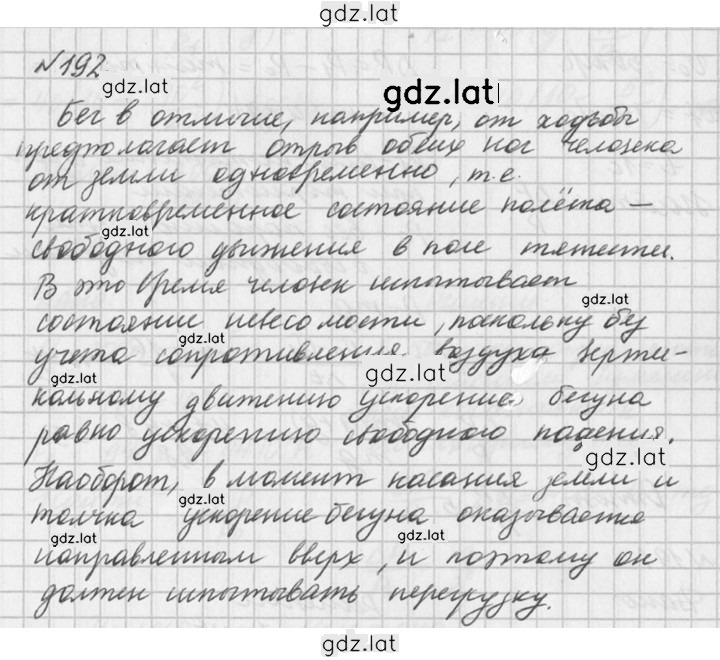 gdz.lat
№192
gdz.lat
gdz.lat
Бег в отличие, например, от ходьбы
предполагает отрыв обеих ног человека
от земли одновременно, т.е.
gdz.lat
кратковременное состояние полёта –
gdz.lat
свободного движения в поле тяжести.
В это время человек испытывает
gdz.lat
состояние невесомости, поскольку без
gdz.lat
учета сопротивления воздуха верти-
gdz.lat
gdz.lat
кальному движению ускорение бегуна
равно ускорению свободного падения.
gdz.lat
Наоборот, в момент касания земли и
gdz.lat
gdz.lat
толчка ускорение бегуна оказывается
gdz.lat
gdz.lat
направленным вверх, и поэтому он
должен испытывать перегрузку.
gdz.lat